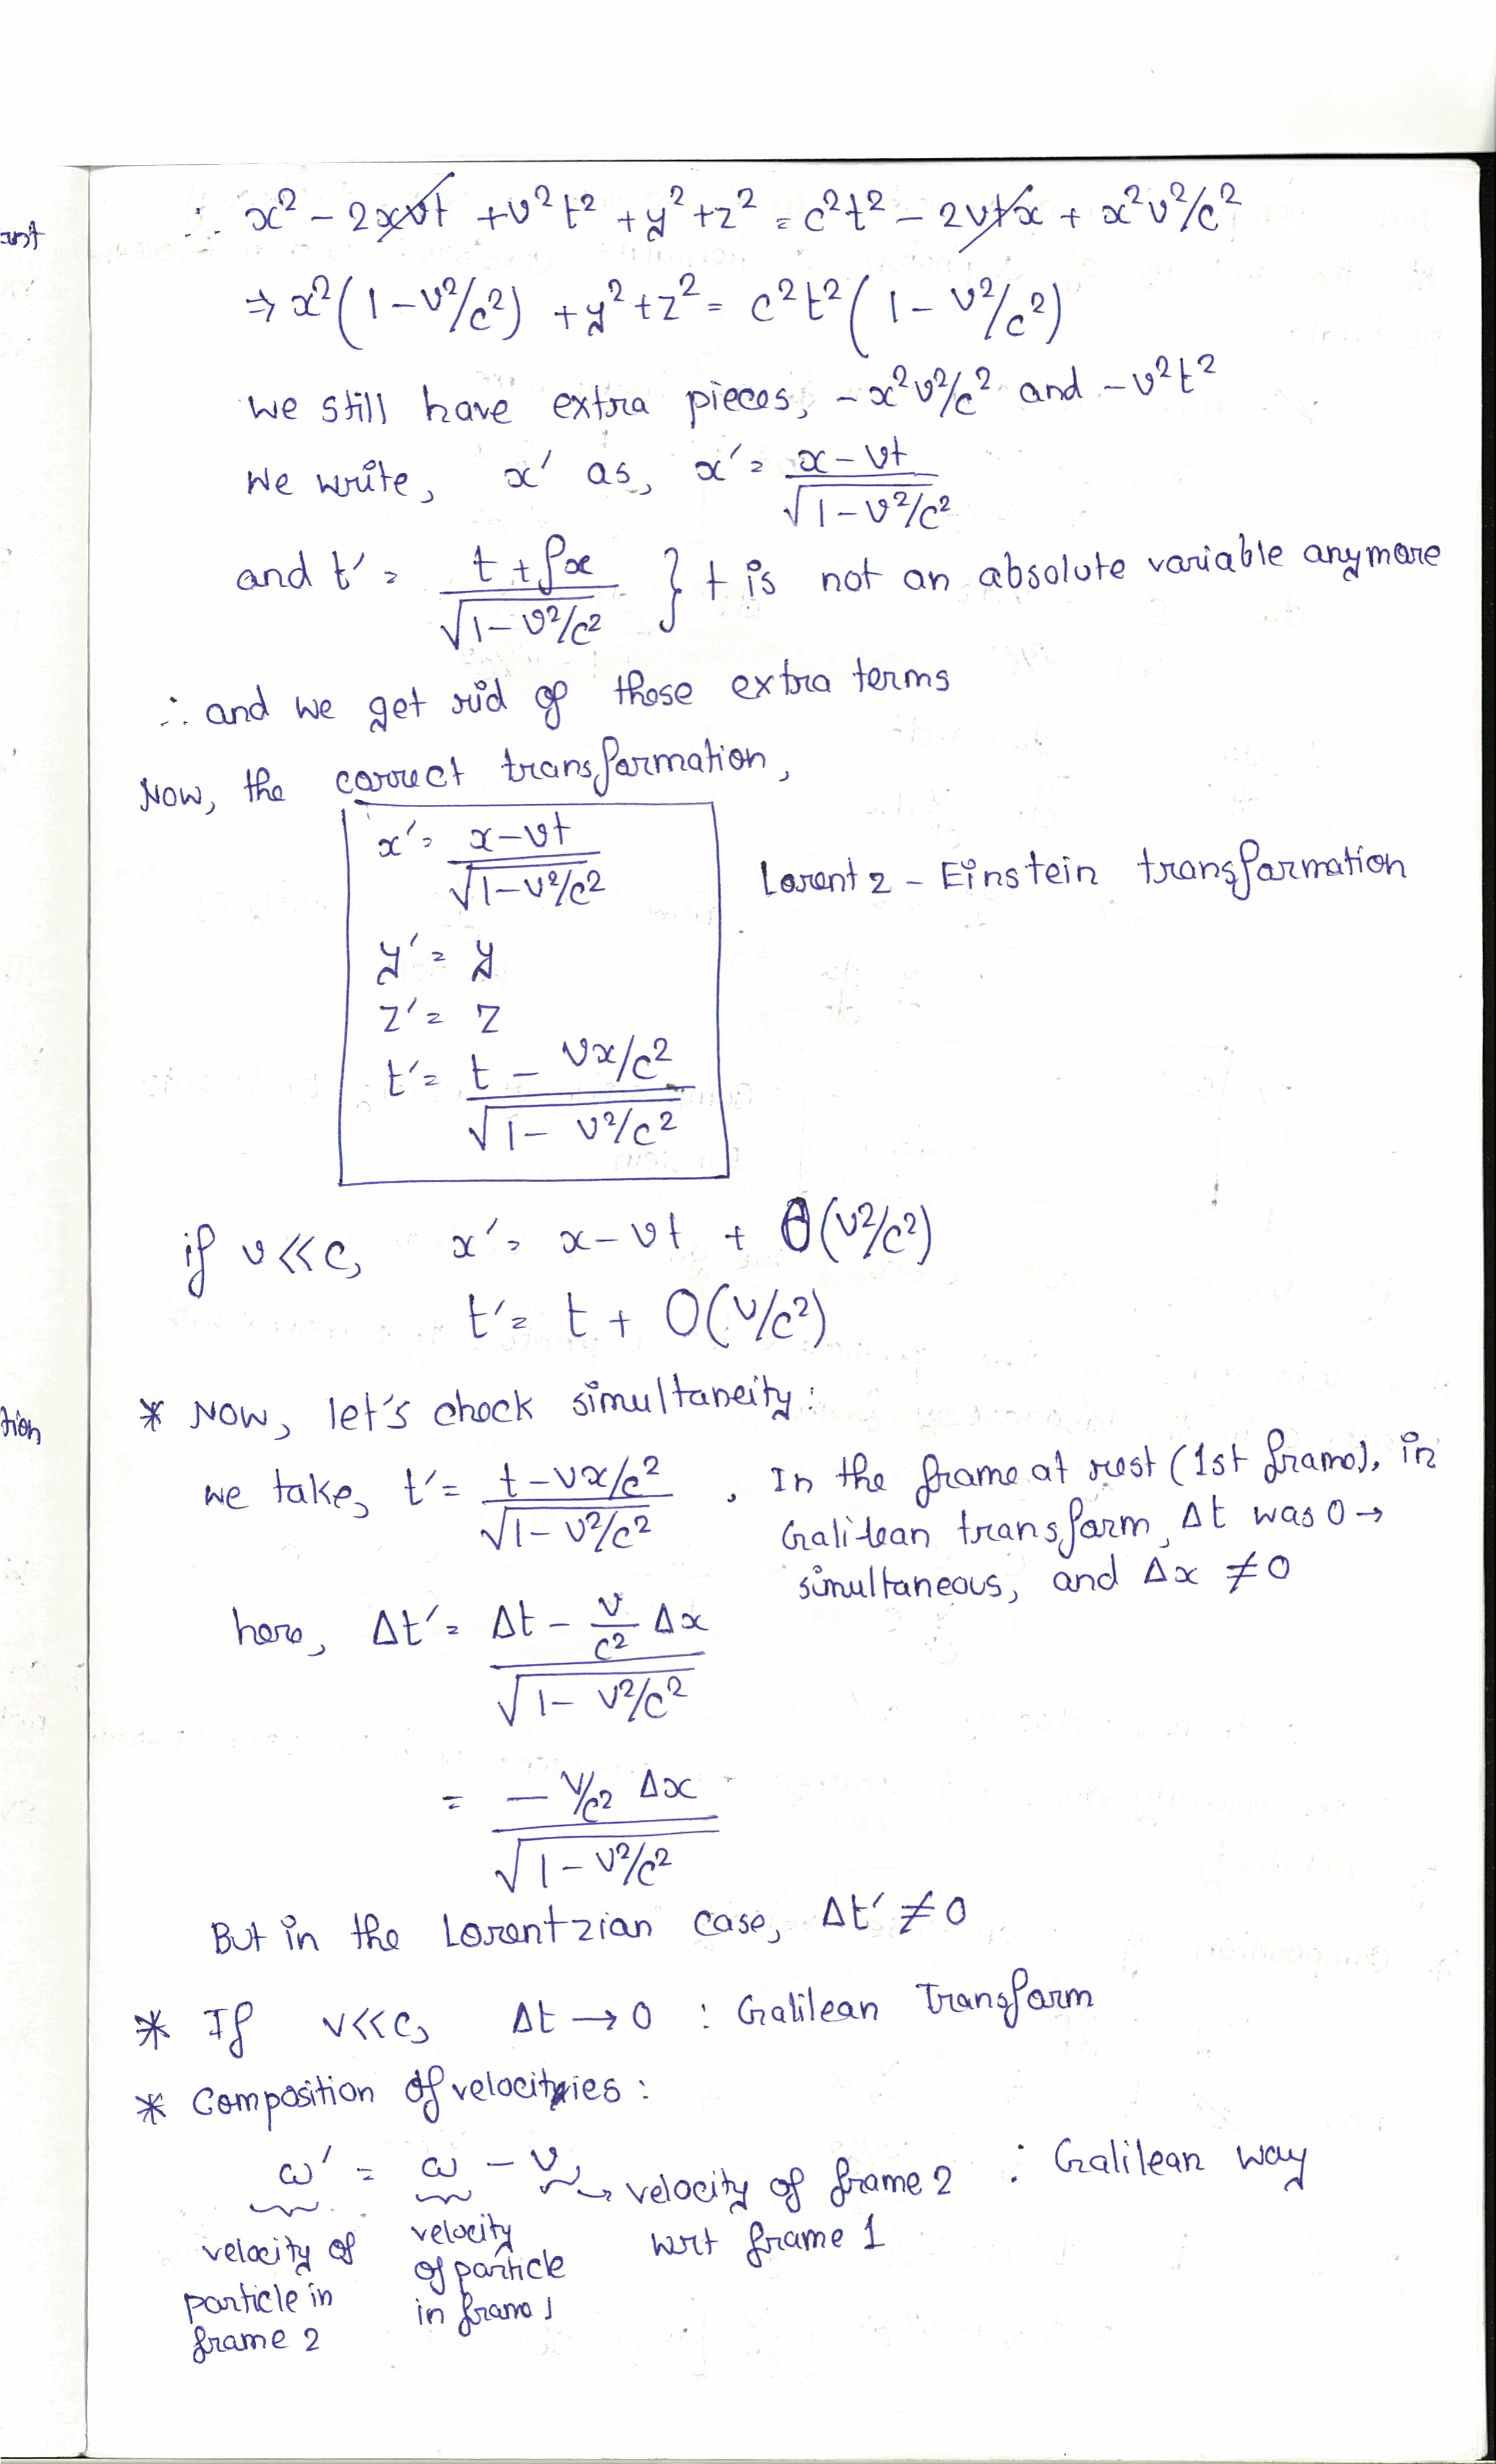 ant
∴ x² - 2xvt + v²t² + y² + z² = c²t² - 2vtx + x²v²/c²
⇒ x²(1 - v²/c²) + y² + z² = c²t²(1 - v²/c²)
we still have extra pieces, -x²v²/c² and -v²t²
We write, x' as, x' = (x - vt)/√(1 - v²/c²)
and t' = (t + ρx)/√(1 - v²/c²) } t is not an absolute variable anymore
∴ and we get rid of those extra terms
Now, the correct transformation,
x' = (x - vt)/√(1 - v²/c²)
Lorentz - Einstein transformation
y' = y
z' = z
t' = (t - vx/c²)/√(1 - v²/c²)
if v << c, x' = x - vt + O(v²/c²)
t' = t + O(v/c²)
tion
* Now, let's check simultaneity:
we take, t' = (t - vx/c²)/√(1 - v²/c²) , In the frame at rest (1st frame), in
Galilean transform, Δt was 0 →
simultaneous, and Δx ≠ 0
here, Δt' = (Δt - v/c² Δx)/√(1 - v²/c²)
= (- v/c² Δx)/√(1 - v²/c²)
But in the Lorentzian case, Δt' ≠ 0
* If v << c, Δt → 0 : Galilean Transform
* Composition of velocities :
ω' = ω - v → velocity of frame 2 : Galilean way
wrt frame 1
velocity of
particle in
frame 2
velocity
of particle
in frame 1